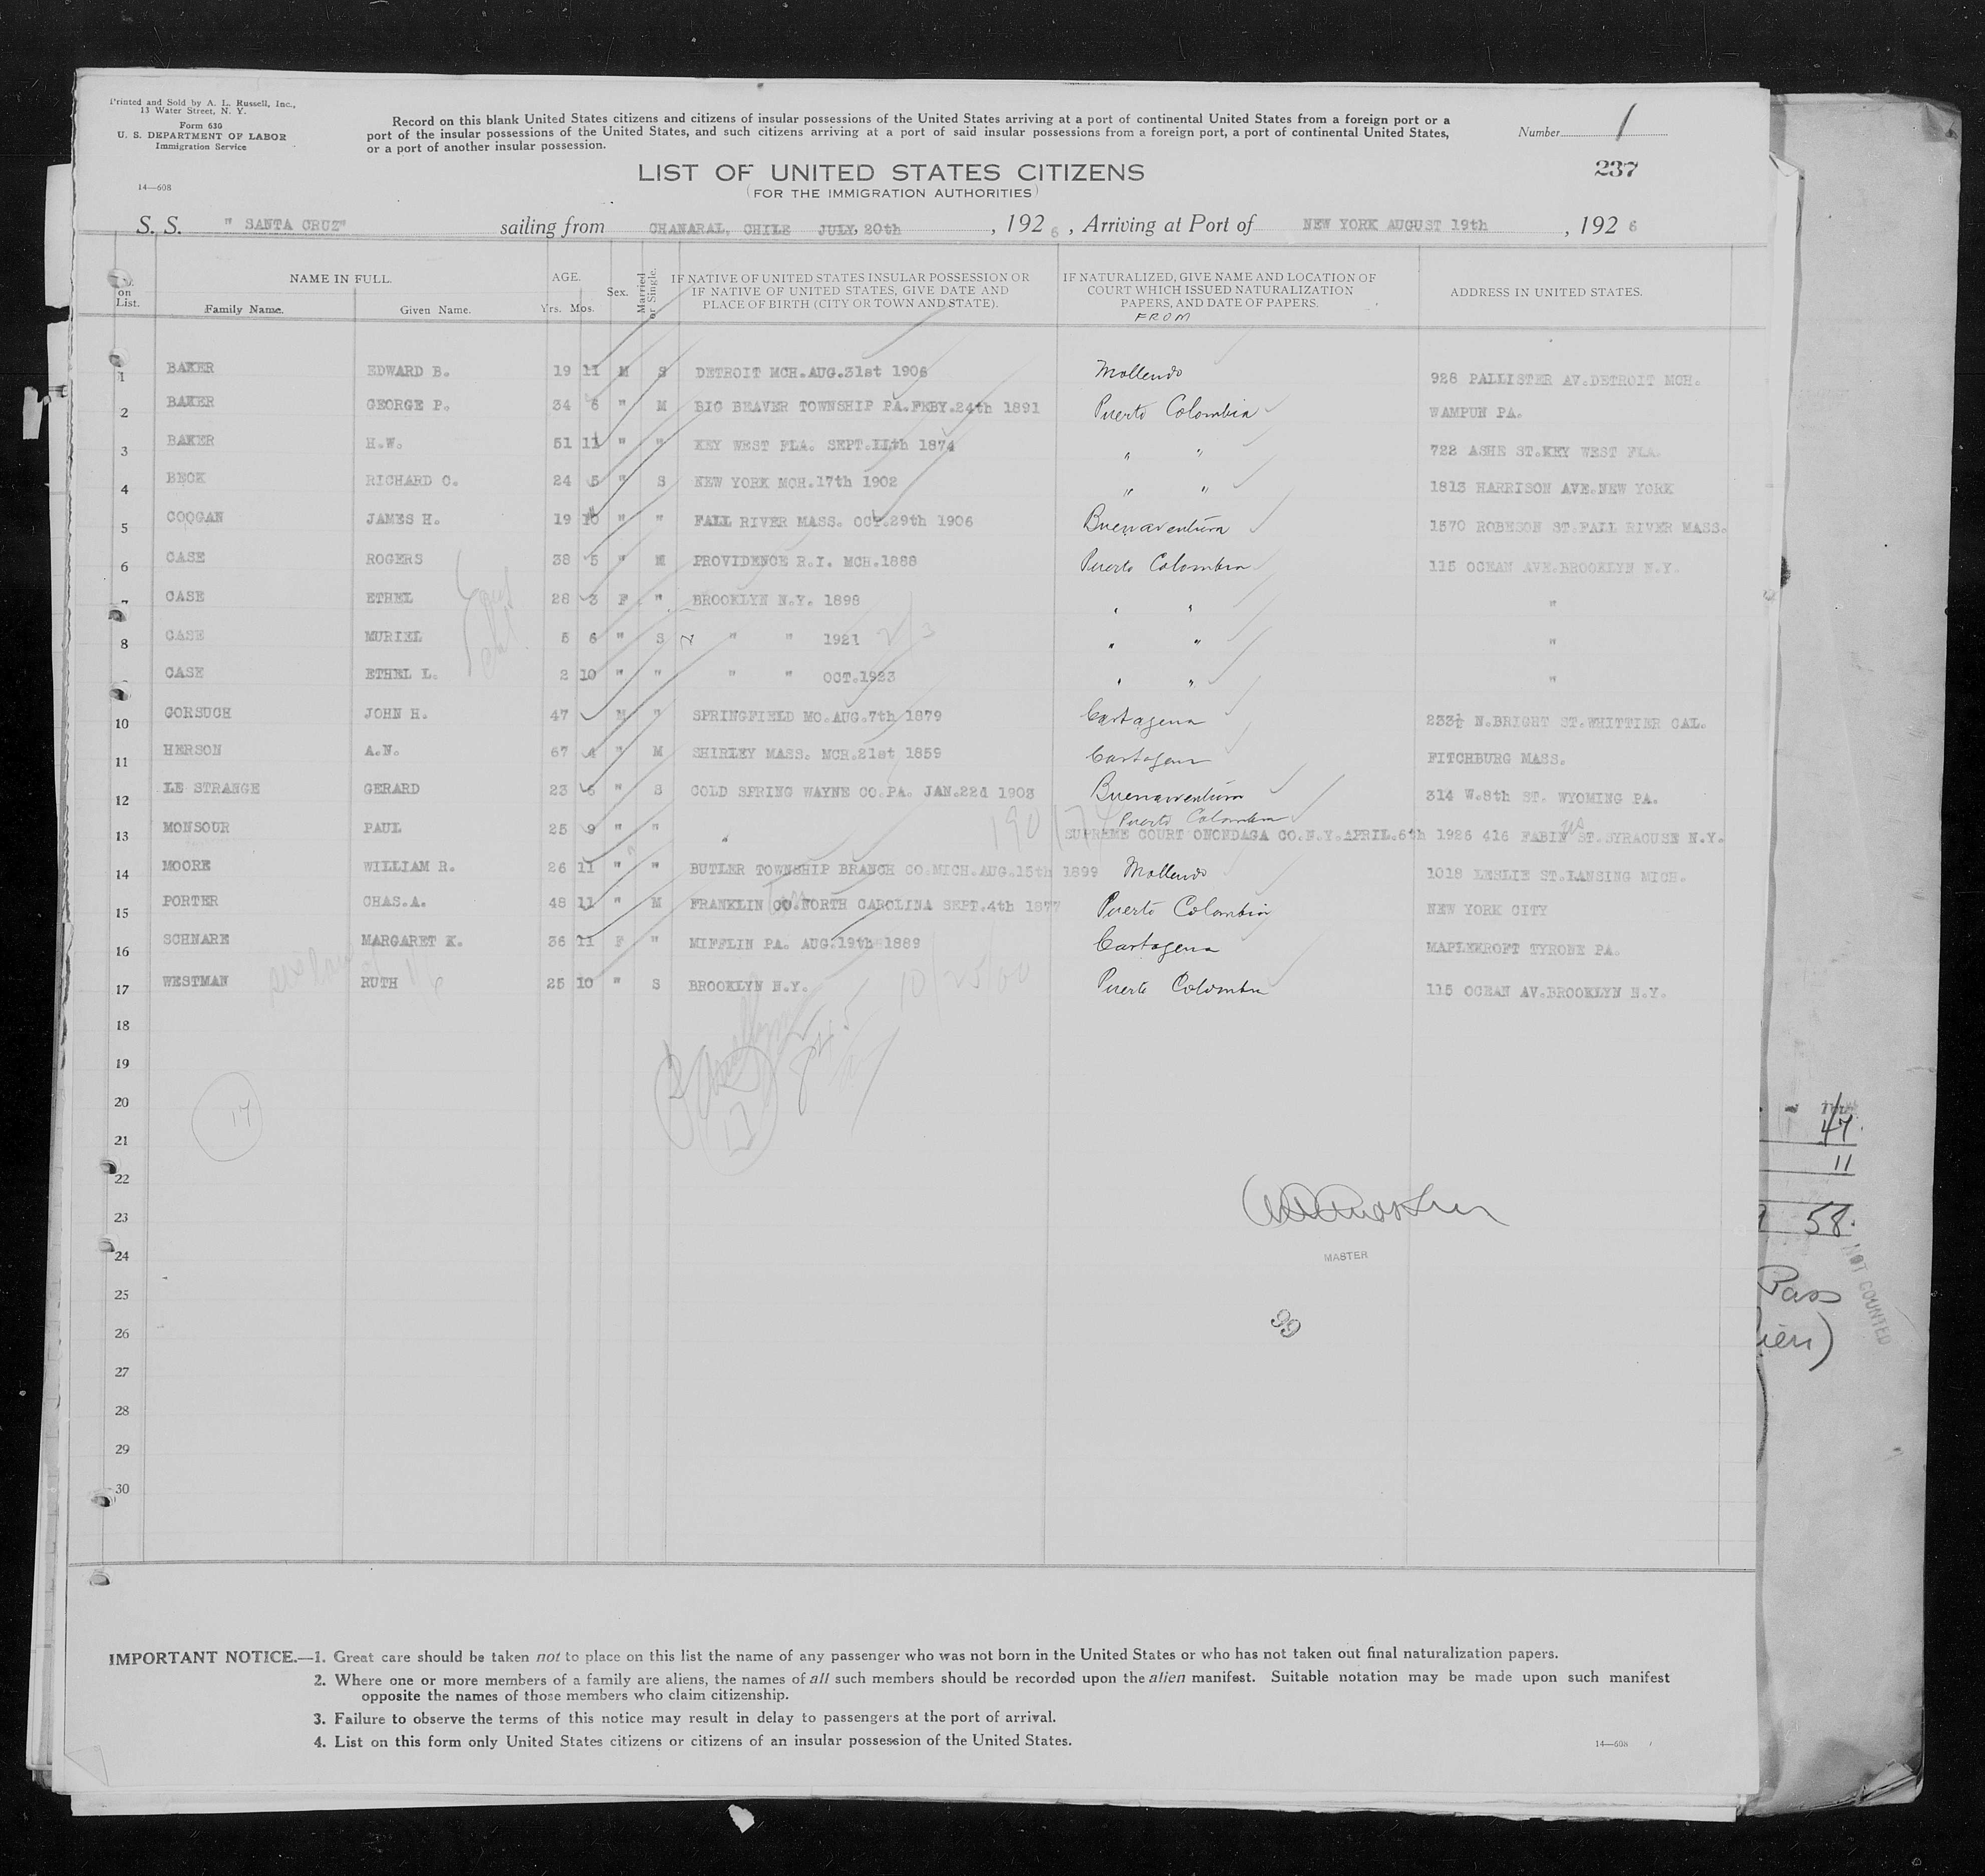 Printed and Sold by A. L. Russell, Inc.,
13 Water Street, N. Y.
Form 630
U. S. DEPARTMENT OF LABOR
Immigration Service
14—608
Record on this blank United States citizens and citizens of insular possessions of the United States arriving at a port of continental United States from a foreign port or a
port of the insular possessions of the United States, and such citizens arriving at a port of said insular possessions from a foreign port, a port of continental United States,
or a port of another insular possession.
Number 1
237
LIST OF UNITED STATES CITIZENS
(FOR THE IMMIGRATION AUTHORITIES)
S. S. " SANTA CRUZ" sailing from CHANARAL, CHILE JULY, 20th , 192 6 , Arriving at Port of NEW YORK AUGUST 19th , 192 6
No. on List. NAME IN FULL. Family Name. Given Name. AGE. Yrs. Mos. Sex. Married or Single. IF NATIVE OF UNITED STATES INSULAR POSSESSION OR IF NATIVE OF UNITED STATES, GIVE DATE AND PLACE OF BIRTH (CITY OR TOWN AND STATE). IF NATURALIZED, GIVE NAME AND LOCATION OF COURT WHICH ISSUED NATURALIZATION PAPERS, AND DATE OF PAPERS. FROM ADDRESS IN UNITED STATES.
1 BAKER EDWARD B. 19 11 M S DETROIT MCH.AUG.31st 1906 Mollendo 926 PALLISTER AV.DETROIT MCH.
2 BAKER GEORGE P. 34 6 " M BIG BEAVER TOWNSHIP PA.FEBY.24th 1891 Puerto Colombia WAMPUN PA.
3 BAKER H.W. 51 11 " " KEY WEST FLA. SEPT.11th 1874 " " 722 ASHE ST.KEY WEST FLA.
4 BECK RICHARD C. 24 5 " S NEW YORK MCH.17th 1902 " " 1813 HARRISON AVE.NEW YORK
5 COOGAN JAMES H. 19 10 " " FALL RIVER MASS. OCT.29th 1906 Buenaventura 1570 ROBESON ST.FALL RIVER MASS.
6 CASE ROGERS 38 5 " M PROVIDENCE R.I. MCH.1888 Puerto Colombia 115 OCEAN AVE.BROOKLYN N.Y.
7 CASE ETHEL 28 3 F " BROOKLYN N.Y. 1898 " " "
8 CASE MURIEL 5 6 " S " " 1921 2/3 " " "
CASE ETHEL L. 2 10 " " " " OCT.1923 " " "
10 GORSUCH JOHN H. 47 M " SPRINGFIELD MO.AUG.7th 1879 Cartagena 233½ N.BRIGHT ST.WHITTIER CAL.
11 HERSON A.N. 67 4 " M SHIRLEY MASS. MCH.21st 1859 Cartagena FITCHBURG MASS.
12 LE STRANGE GERARD 23 6 " S COLD SPRING WAYNE CO.PA. JAN.22d 1903 Buenaventura 314 W.8th ST. WYOMING PA.
Puerto Colombia
13 MONSOUR PAUL 25 9 " " SUPREME COURT ONONDAGA CO.N.Y.APRIL.6th 1926 416 FABIN ST.SYRACUSE N.Y.
14 MOORE WILLIAM R. 26 11 " " BUTLER TOWNSHIP BRANCH CO.MICH.AUG.15th 1899 Mollendo 1018 LESLIE ST.LANSING MICH.
15 PORTER CHAS.A. 48 11 " M FRANKLIN CO.NORTH CAROLINA SEPT.4th 1877 Puerto Colombia NEW YORK CITY
16 SCHNARE MARGARET K. 36 11 F " MIFFLIN PA. AUG.19th 1889 Cartagena MAPLEKROFT TYRONE PA.
17 WESTMAN RUTH 25 10 " S BROOKLYN N.Y. 10/25/00 Puerto Colombia 115 OCEAN AV.BROOKLYN N.Y.
18
19
20
17
21
22
23
24
MASTER
25
26
99
27
28
29
30
47
11
58
NOT COUNTED
Pass
IMPORTANT NOTICE.—1. Great care should be taken not to place on this list the name of any passenger who was not born in the United States or who has not taken out final naturalization papers.
2. Where one or more members of a family are aliens, the names of all such members should be recorded upon the alien manifest. Suitable notation may be made upon such manifest
opposite the names of those members who claim citizenship.
3. Failure to observe the terms of this notice may result in delay to passengers at the port of arrival.
4. List on this form only United States citizens or citizens of an insular possession of the United States.
14—608